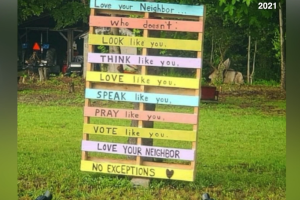 2021
Love your Neighbor...
who doesn't:
LOOK like you.
THINK like you.
LOVE like you.
SPEAK like you.
PRAY like you.
VOTE like you.
LOVE YOUR NEIGHBOR
NO EXCEPTIONS